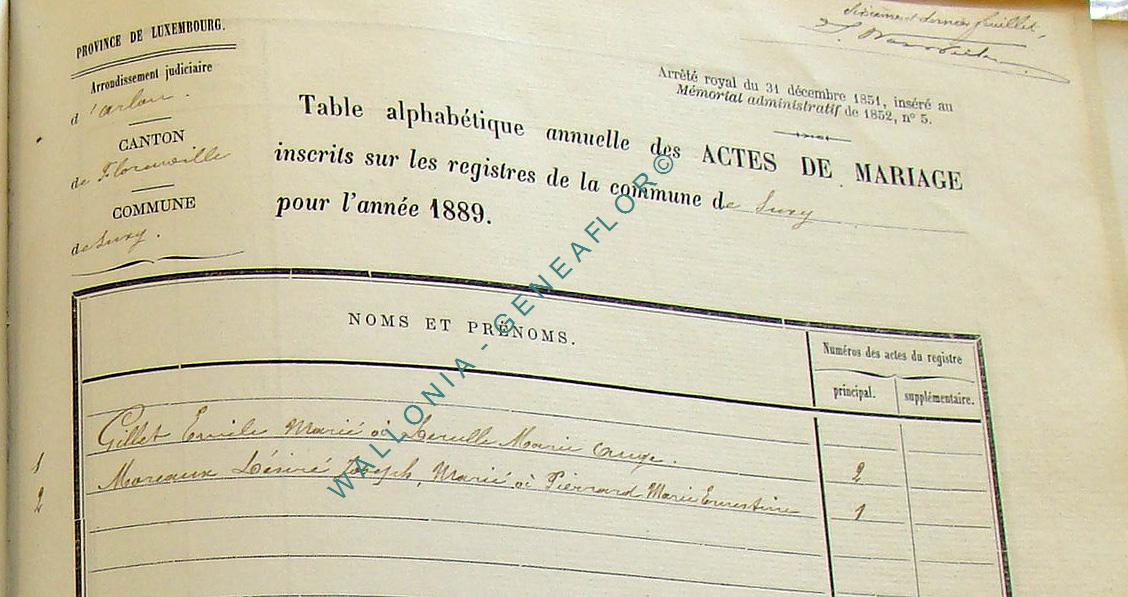 PROVINCE DE LUXEMBOURG.
Arrondissement judiciaire
d'Arlon.
CANTON
de Florenville
COMMUNE
de Suxy.
Sixième et dernier feuillet,
Arrêté royal du 31 décembre 1851, inséré au
Mémorial administratif de 1852, n° 5.
Table alphabétique annuelle des ACTES DE MARIAGE
inscrits sur les registres de la commune de Suxy
pour l'année 1889.
NOMS ET PRÉNOMS.
Numéros des actes du registre
principal. supplémentaire.
1 Gillet Emile Marié à Marie Ange. 2
2 Moreaux Désiré Joseph, Marié à Pierrard Marie Ernestine 1
WALLONIA - GENEAFLOR©